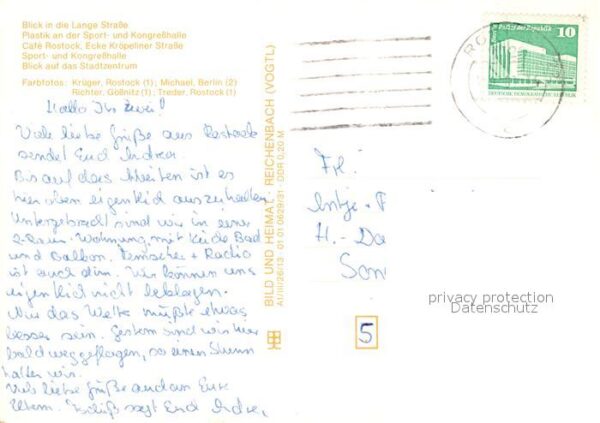 Blick in die Lange Straße
Plastik an der Sport- und Kongreßhalle
Café Rostock, Ecke Kröpeliner Straße
Sport- und Kongreßhalle
Blick auf das Stadtzentrum
Farbfotos: Krüger, Rostock (1); Michael, Berlin (2)
Richter, Gößnitz (1); Treder, Rostock (1)
Hallo Ihr zwei!
Viele liebe Grüße aus Rostock
sendet Euch Andrea.
Bis auf das Arbeiten ist es
hier oben eigentlich auszuhalten
Untergebracht sind wir in einer
2-Raum-Wohnung mit Küche Bad
und Balkon. Fernseher + Radio
ist auch drin. Wir können uns
eigentlich nicht beklagen.
Nur das Wetter müßte etwas
besser sein. Gestern sind wir hier
bald weggeflogen, so einen Sturm
hatten wir.
Viele liebe Grüße an Eure
Eltern. Tschüß sagt Euch Andrea
BILD UND HEIMAT REICHENBACH (VOGTL)
A1/III/26/13 01 01 0629/31 DDR 0,20 M
10
DEUTSCHE DEMOKRATISCHE REPUBLIK
Antje
H.-Da
Son
privacy protection
Datenschutz
5